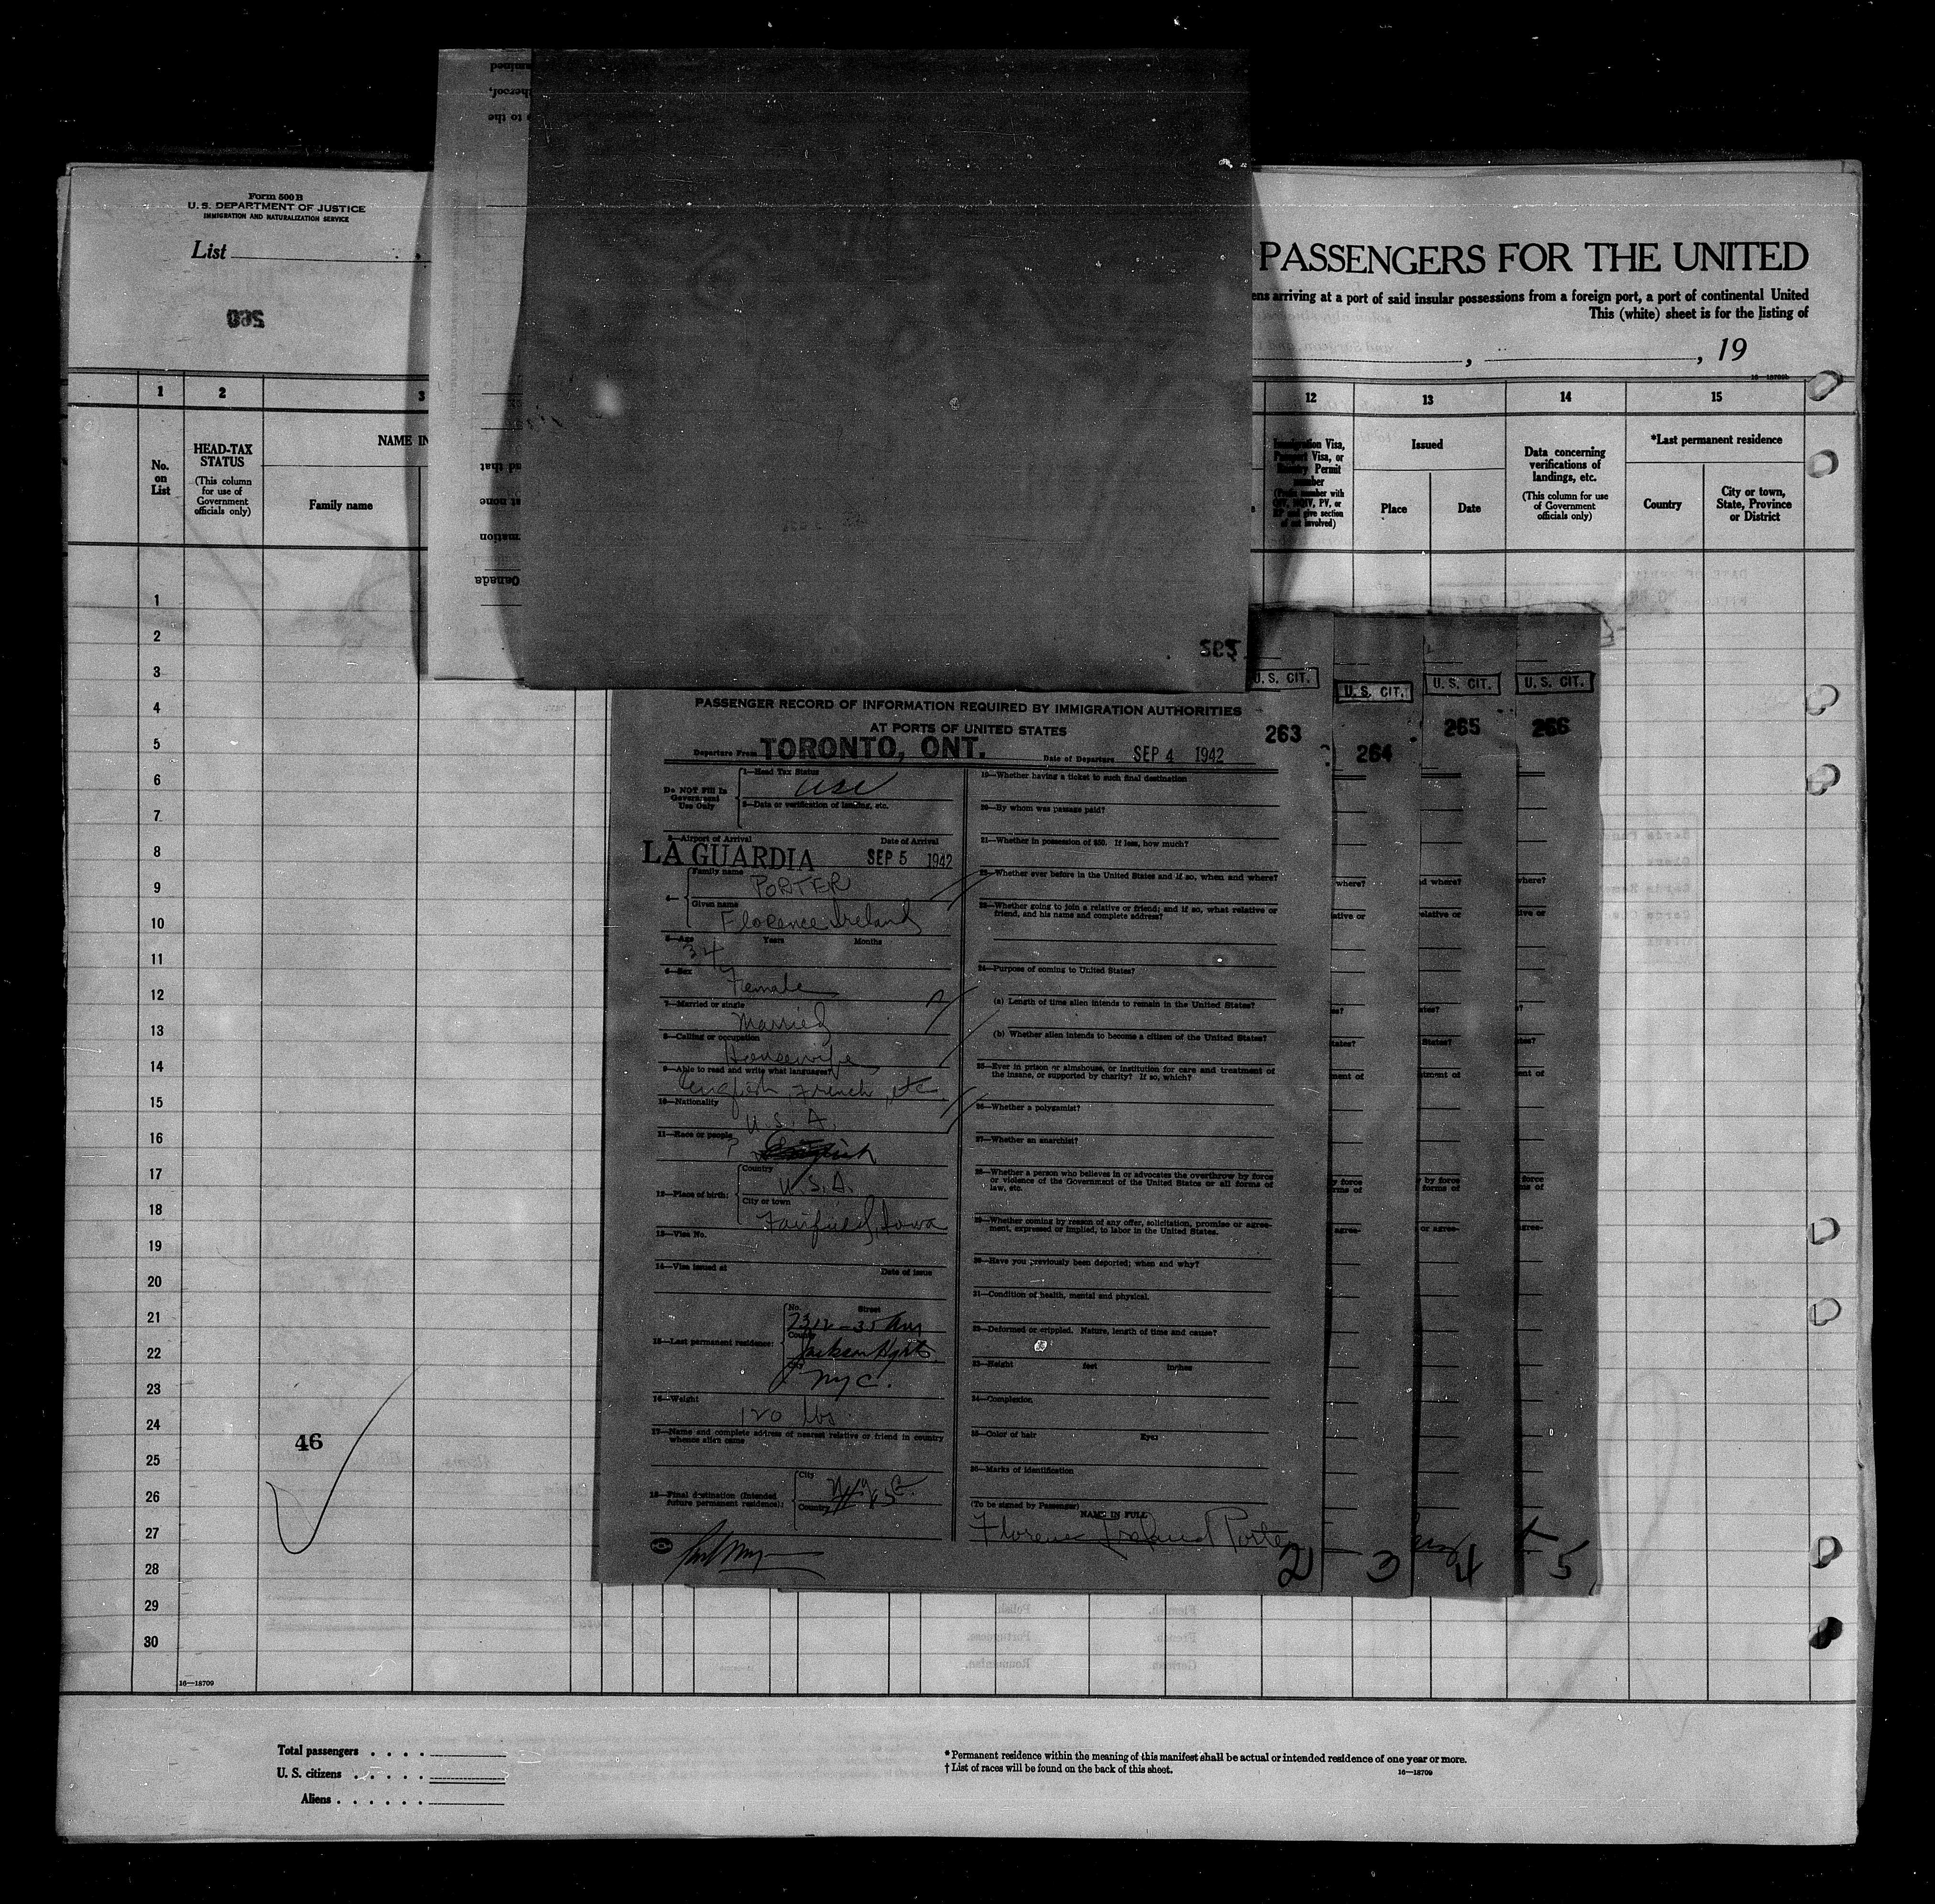 Form 500 B
U. S. DEPARTMENT OF JUSTICE
IMMIGRATION AND NATURALIZATION SERVICE
List
PASSENGERS FOR THE UNITED
ens arriving at a port of said insular possessions from a foreign port, a port of continental United
This (white) sheet is for the listing of
, , 19
1 2 3 12 13 14 15
No. on List
HEAD-TAX STATUS
(This column for use of Government officials only)
NAME IN
Family name
Immigration Visa, Passport Visa, or Reentry Permit number
Issued
Place
Date
Data concerning verifications of landings, etc.
(This column for use of Government officials only)
*Last permanent residence
Country
City or town, State, Province or District
262
U. S. CIT.
U. S. CIT.
U. S. CIT.
U. S. CIT.
263
264
265
266
PASSENGER RECORD OF INFORMATION REQUIRED BY IMMIGRATION AUTHORITIES
AT PORTS OF UNITED STATES
Departure From TORONTO, ONT. Date of Departure SEP 4 1942
Do NOT Fill In Government Use Only
1—Head Tax Status
USC
2—Data or verification of landing, etc.
3—Airport of Arrival Date of Arrival
LA GUARDIA SEP 5 1942
4— Family name
PORTER
Given name
Florence Ireland
5—Age Years Months
34
6—Sex
Female
7—Married or single
Married
8—Calling or occupation
Housewife
9—Able to read and write what languages?
English, French, etc
10—Nationality
U.S.A.
11—Race or people
?
12—Place of birth:
Country
U.S.A.
City or town
Fairfield, Iowa
13—Visa No.
14—Visa issued at Date of issue
15—Last permanent residence:
No. Street
7312-35 Ave
County
Jackson Hgts
City
NYC.
16—Weight
120 lbs
17—Name and complete address of nearest relative or friend in country whence alien came
18—Final destination (Intended future permanent residence):
City
Country
19—Whether having a ticket to such final destination
20—By whom was passage paid?
21—Whether in possession of $50. If less, how much?
22—Whether ever before in the United States and if so, when and where?
23—Whether going to join a relative or friend; and if so, what relative or
friend, and his name and complete address?
24—Purpose of coming to United States?
(a) Length of time alien intends to remain in the United States?
(b) Whether alien intends to become a citizen of the United States?
25—Ever in prison or almshouse, or institution for care and treatment of
the insane, or supported by charity? If so, which?
26—Whether a polygamist?
27—Whether an anarchist?
28—Whether a person who believes in or advocates the overthrow by force
or violence of the Government of the United States or all forms of
law, etc.
29—Whether coming by reason of any offer, solicitation, promise or agree-
ment, expressed or implied, to labor in the United States.
30—Have you previously been deported; when and why?
31—Condition of health, mental and physical.
32—Deformed or crippled. Nature, length of time and cause?
33—Height feet inches
34—Complexion
35—Color of hair Eyes
36—Marks of identification
(To be signed by Passenger)
NAME IN FULL
Florence Ireland Porter
2 3 4 5
1
2
3
4
5
6
7
8
9
10
11
12
13
14
15
16
17
18
19
20
21
22
23
24
25
26
27
28
29
30
46
16—18709
Total passengers . . . .
U. S. citizens . . . . .
Aliens . . . . . .
* Permanent residence within the meaning of this manifest shall be actual or intended residence of one year or more.
† List of races will be found on the back of this sheet.
16—18709